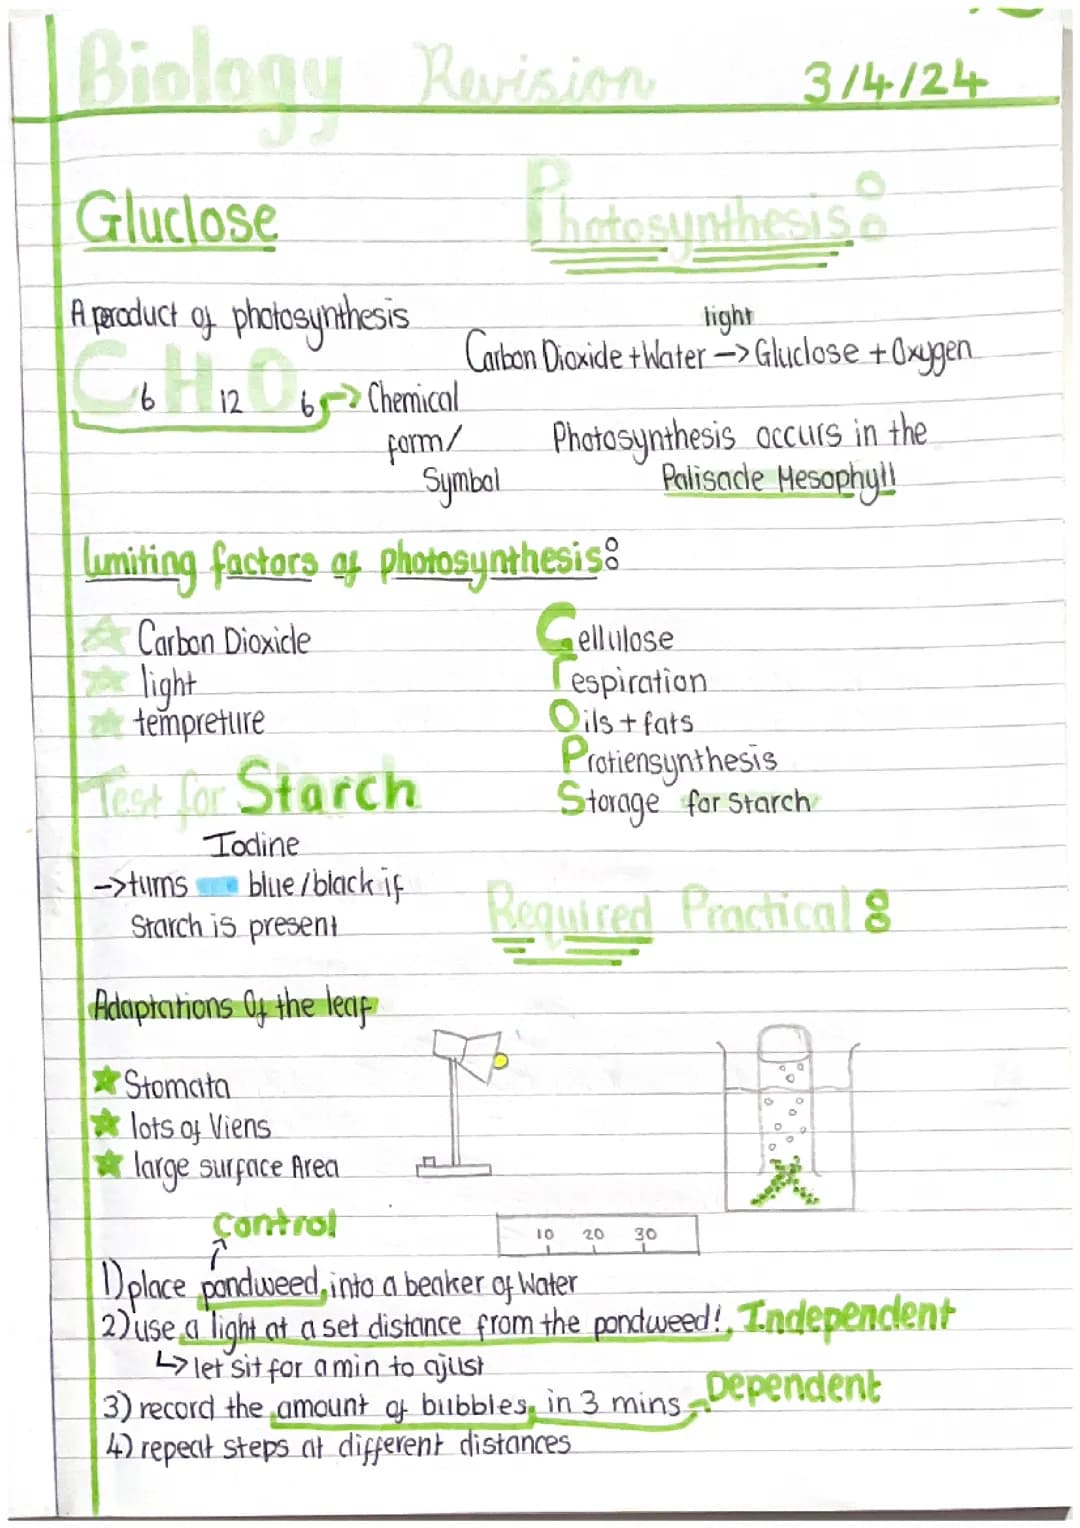 Biology Revision 3/4/24
Gluclose
A product of photosynthesis
C6 H12 O6 -> Chemical
form/
Symbol
Photosynthesis:
light
Carbon Dioxide + Water -> Gluclose + Oxygen
Photosynthesis occurs in the
Palisade Mesophyll
limiting factors of photosynthesis:
Carbon Dioxide
light
tempreture
Cellulose
respiration
Oils + fats
Protiensynthesis
Storage for Starch
Test for Starch
Iodine
-> turns blue/black if
Starch is present
Required Practical:
Adaptations Of the leaf
Stomata
lots of Viens
large surface Area
10 20 30
Control
1) place pondweed, into a beaker of Water
2) use a light at a set distance from the pondweed!, Independent
↳ let sit for a min to ajust
3) record the amount of bubbles, in 3 mins Dependent
4) repeat steps at different distances